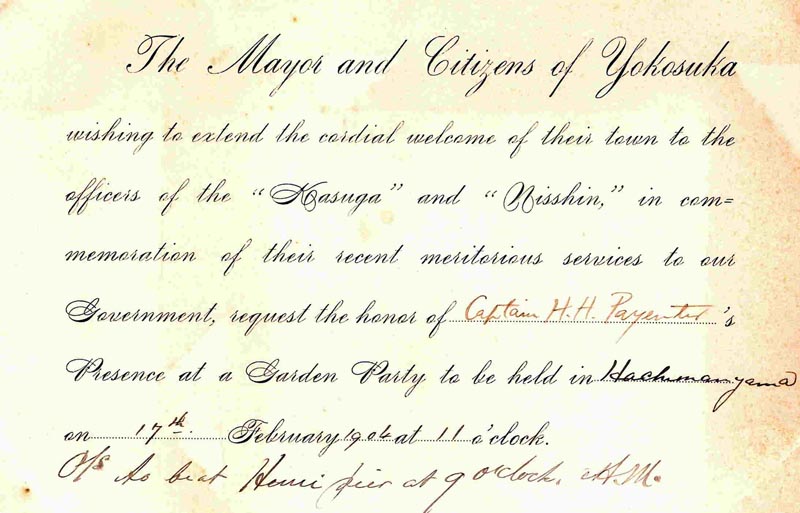 The Mayor and Citizens of Yokosuka
wishing to extend the cordial welcome of their town to the
officers of the "Kasuga" and "Nisshin," in com=
memoration of their recent meritorious services to our
Government, request the honor of Captain H. H. Paynter's
Presence at a Garden Party to be held in Hachmanyama
on 17th. February 1904 at 11 o'clock.
to be at pier at 9 o'clock. A.M.